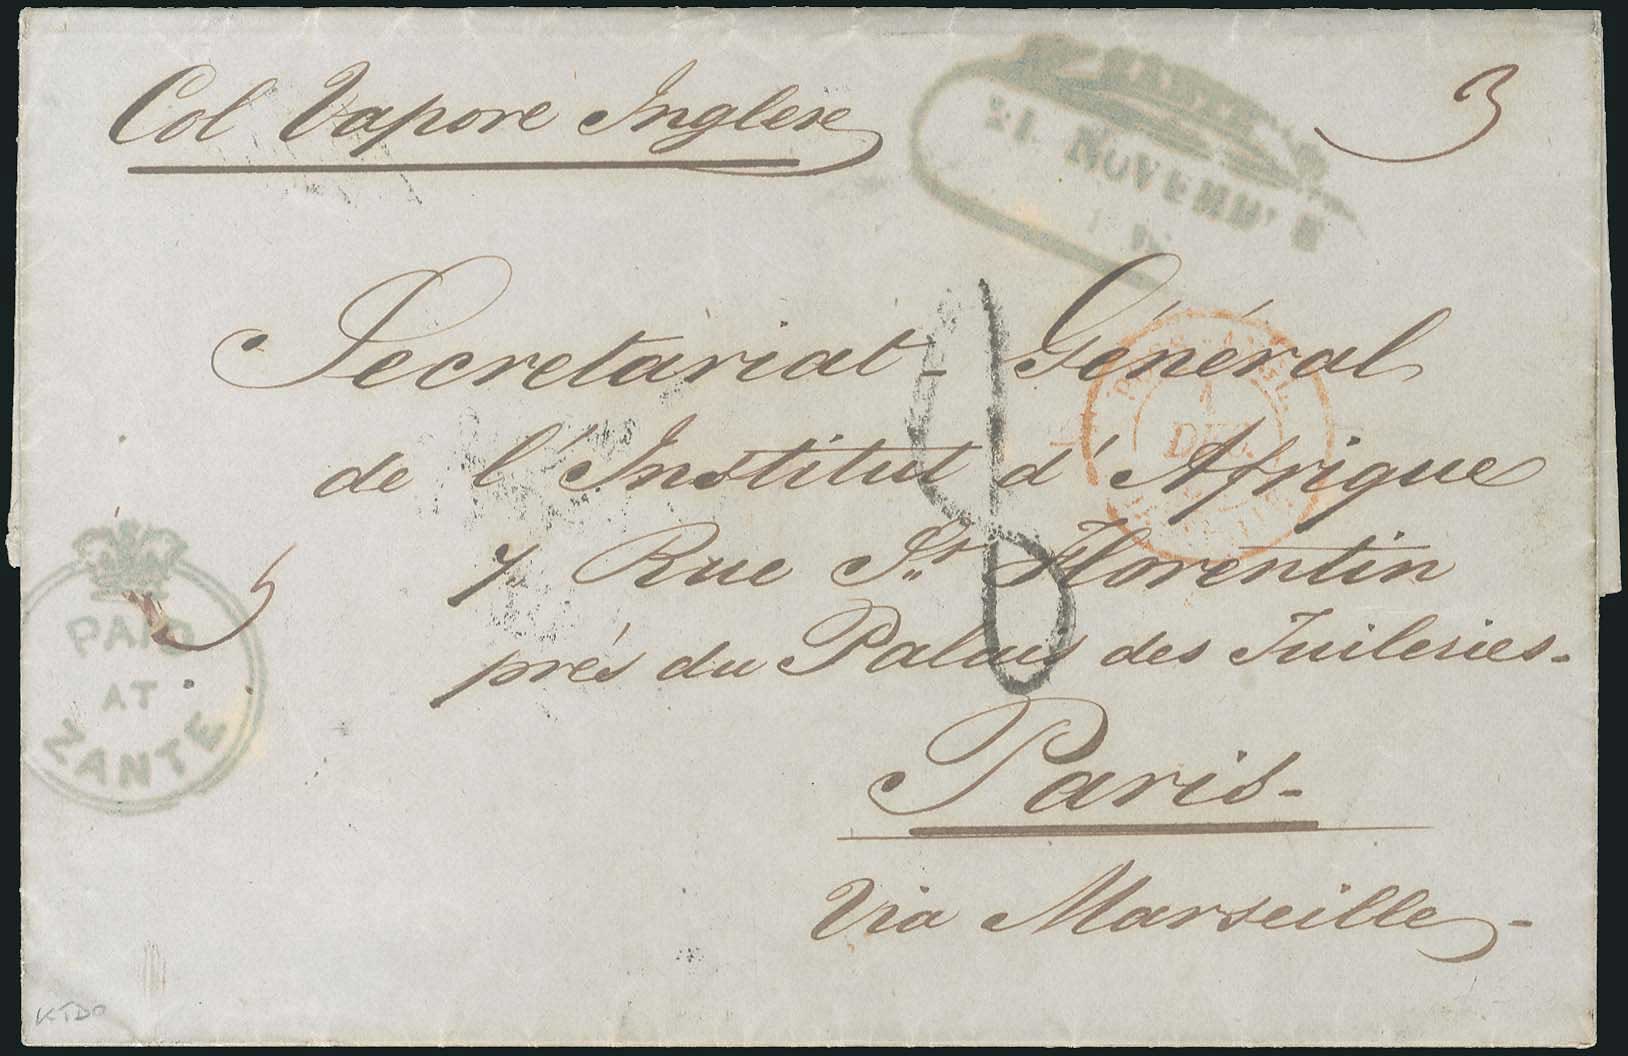 Col Vapore Inglese
3
ZANTE
21. NOVEMBRE
Secretariat Général
de l'Institut d'Afrique
7 Rue St. Florentin
près du Palais des Tuileries.
Paris.
Via Marseille
PAID
AT
ZANTE
5
1
DEC.
KTDO